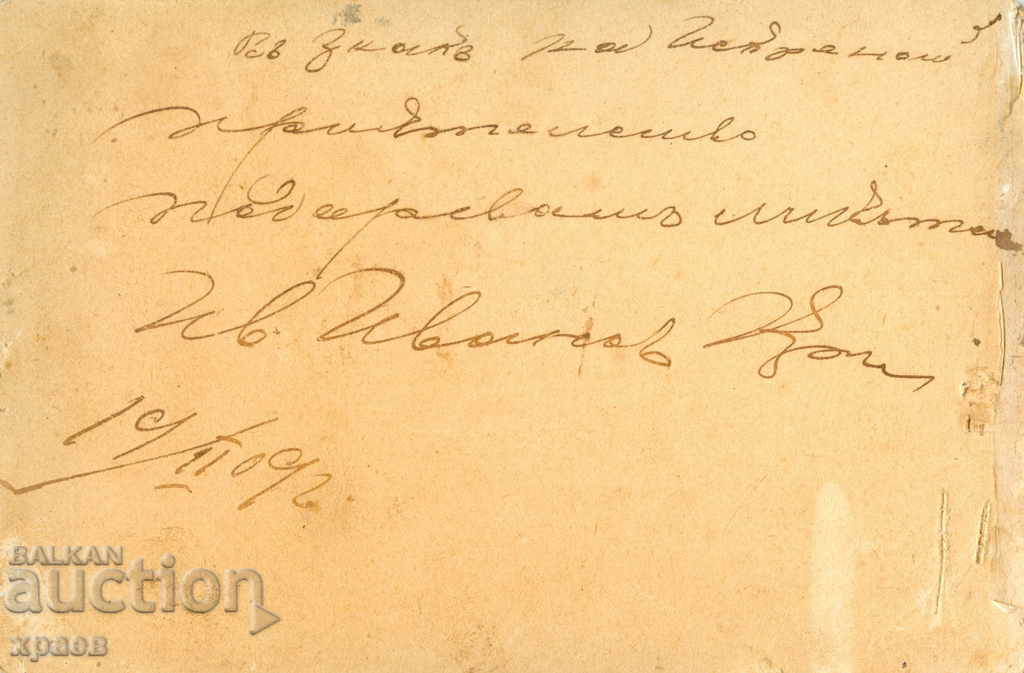 Въ знакъ на искрено
приятелство
подарявамъ
Ив. Иванов
19/II 09 г.
BALKAN
auction
храов